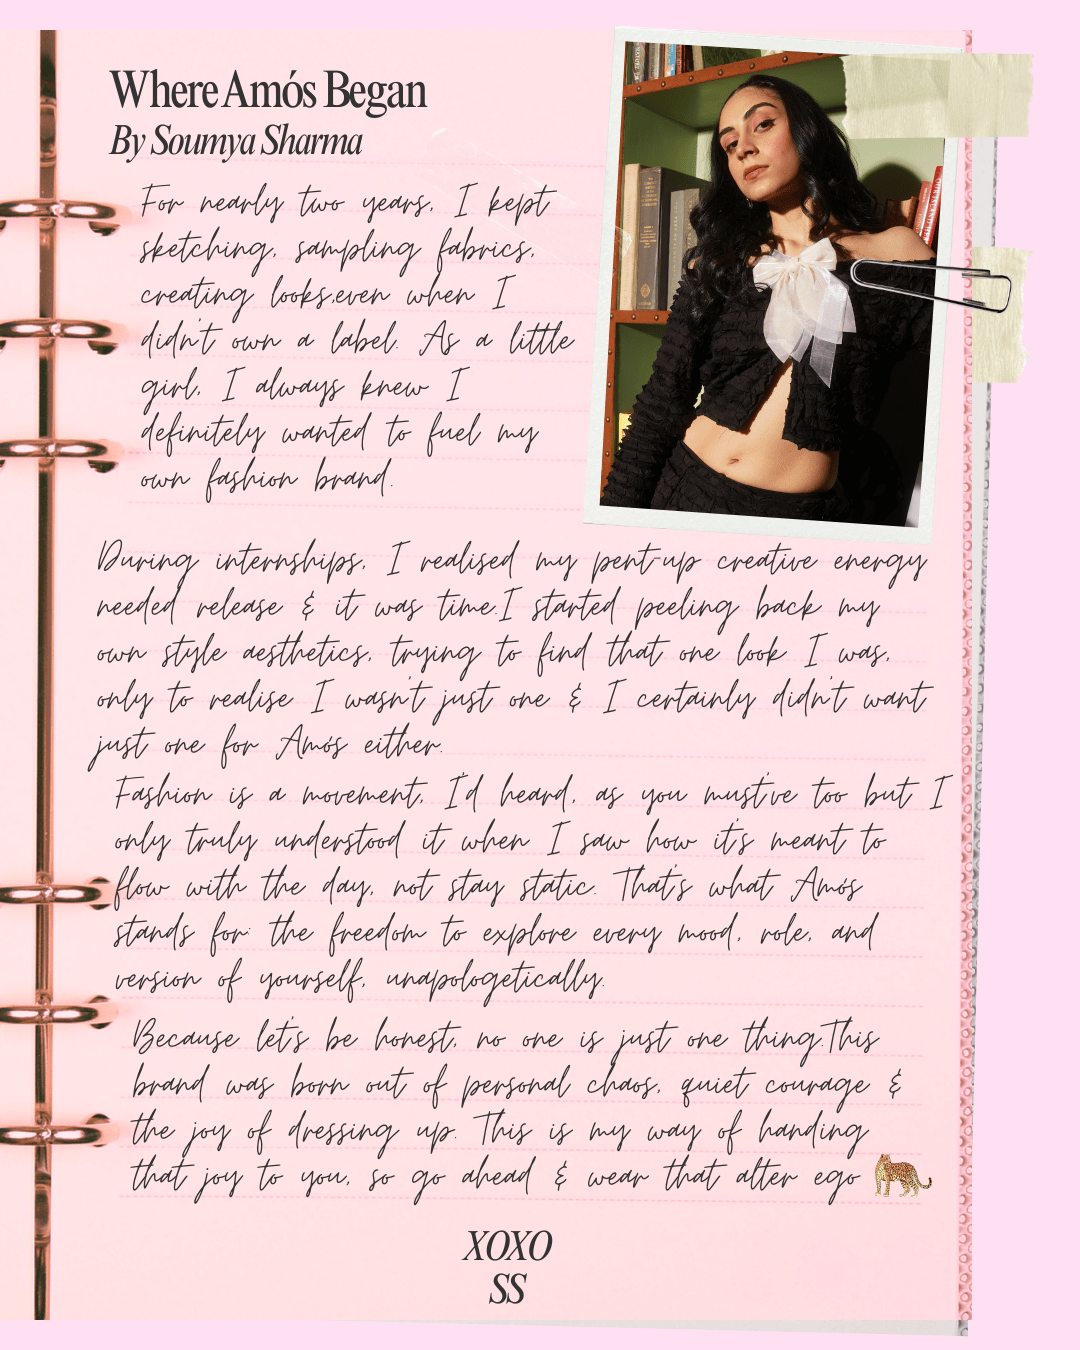 Where Amós Began
By Soumya Sharma
For nearly two years, I kept
sketching, sampling fabrics,
creating looks,even when I
didn't own a label. As a little
girl, I always knew I
definitely wanted to fuel my
own fashion brand.
During internships, I realised my pent-up creative energy
needed release & it was time.I started peeling back my
own style aesthetics, trying to find that one look I was,
only to realise I wasn't just one & I certainly didn't want
just one for Amós either.
Fashion is a movement, I'd heard, as you must've too but I
only truly understood it when I saw how it's meant to
flow with the day, not stay static. That's what Amós
stands for: the freedom to explore every mood, role, and
version of yourself, unapologetically.
Because let's be honest, no one is just one thing.This
brand was born out of personal chaos, quiet courage &
the joy of dressing up. This is my way of handing
that joy to you, so go ahead & wear that alter ego
XOXO
SS